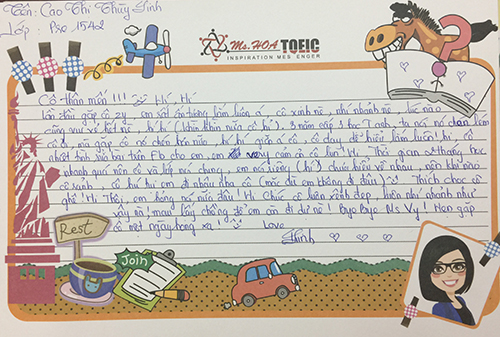 Tên: Cao Thị Thùy Linh
Lớp: Pre 1542
Ms.HOA TOEIC
INSPIRATION MESSENGER
Cô thân mến !!! Hí, Hí
Lần đầu gặp cô zy em rất ấn tượng lắm luôn á, cô xinh nè, nhí nhảnh nè, lúc nào
cũng vui vẻ hết nè, hí hí (thân thiện nữa cô hí). 3 năm cấp 3 học Tanh, ta nói nó chán lắm
cô ơi, mà gặp cô nó chán hết nữa, hí hí, giờ á cô, cô dạy dễ hiểu lắm luôn! hí, cô
nhiệt tình sửa bài trên Fb cho em, em very cảm ơn cô lun! Hí. Thời gian
nhanh quá nên cô và lớp mà chung, em nói riêng (hí) chưa hiểu về nhau, nên khi nào
cô rảnh, cô hú hí em đi nhậu nha cô (mặc dù em không đi đâu) Thích học cô
ghê! Hi Thôi, em hong nói nữa đâu! Hi Chúc cô luôn xinh đẹp, luôn nhí nhảnh như
vậy nà, mau lấy chồng để em còn đi dự nè! Bye Bye Ms Vy! Hẹn gặp
cô một ngày hong xa!
Love
Linh
Rest
Join